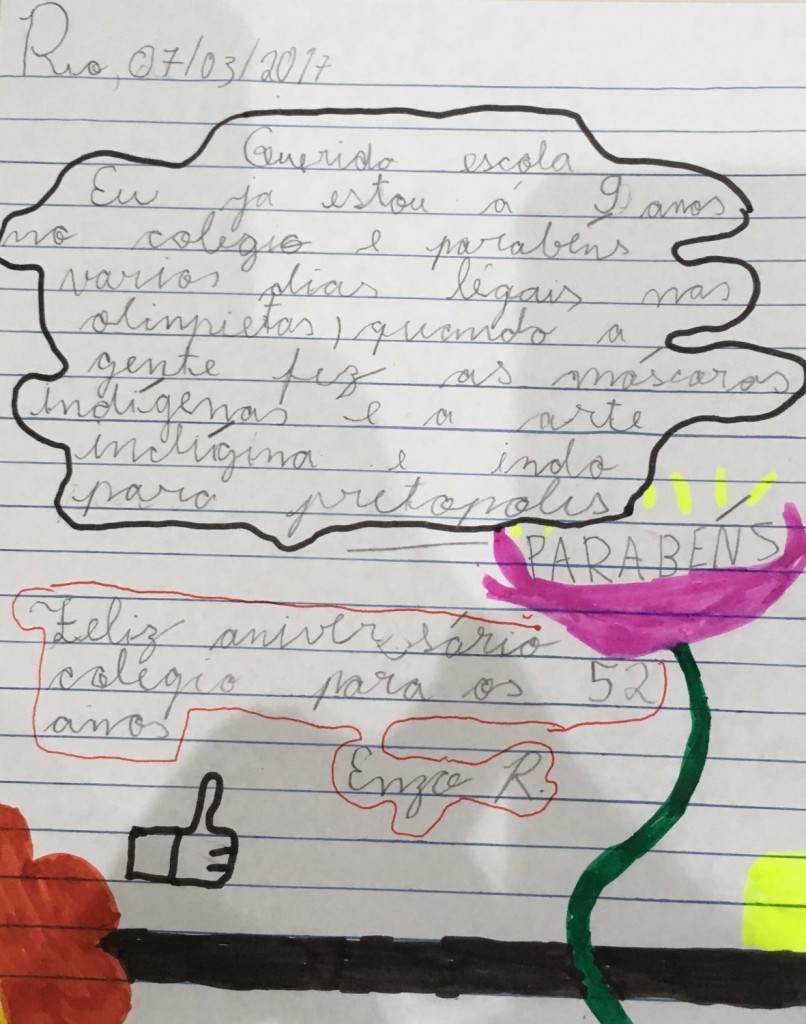 Rio, 07/03/2017
Querida escola
Eu ja estou á 9 anos
no colégio e parabéns
varios dias légais nas
olinpietas, quando a
gente fez as máscaras
indígenas e a arte
indígina e indo
para pretopolis
PARABÉNS
Feliz aniversário
colégio para os 52
anos
Enzo R.